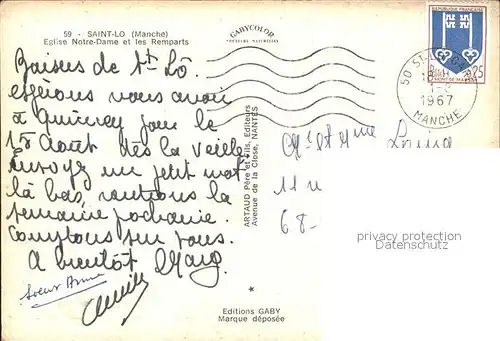 59 - SAINT-LO (Manche)
Eglise Notre-Dame et les Remparts
GABYCOLOR
Baisers de St Lô.
espérons vous avoir
à Quincey pour le
15 Août dès la veille
Envoyez un petit mot
là bas, rentrons la
semaine prochaine.
Comptons sur vous.
A bientôt
ARTAUD Père et Fils, Editeurs
Avenue de la Close, NANTES
REPUBLIQUE FRANÇAISE
MONT-DE-MARSAN
25
50 ST-LO
1967
MANCHE
Mr et Mme
11
68-
privacy protection
Datenschutz
Editions GABY
Marque déposée